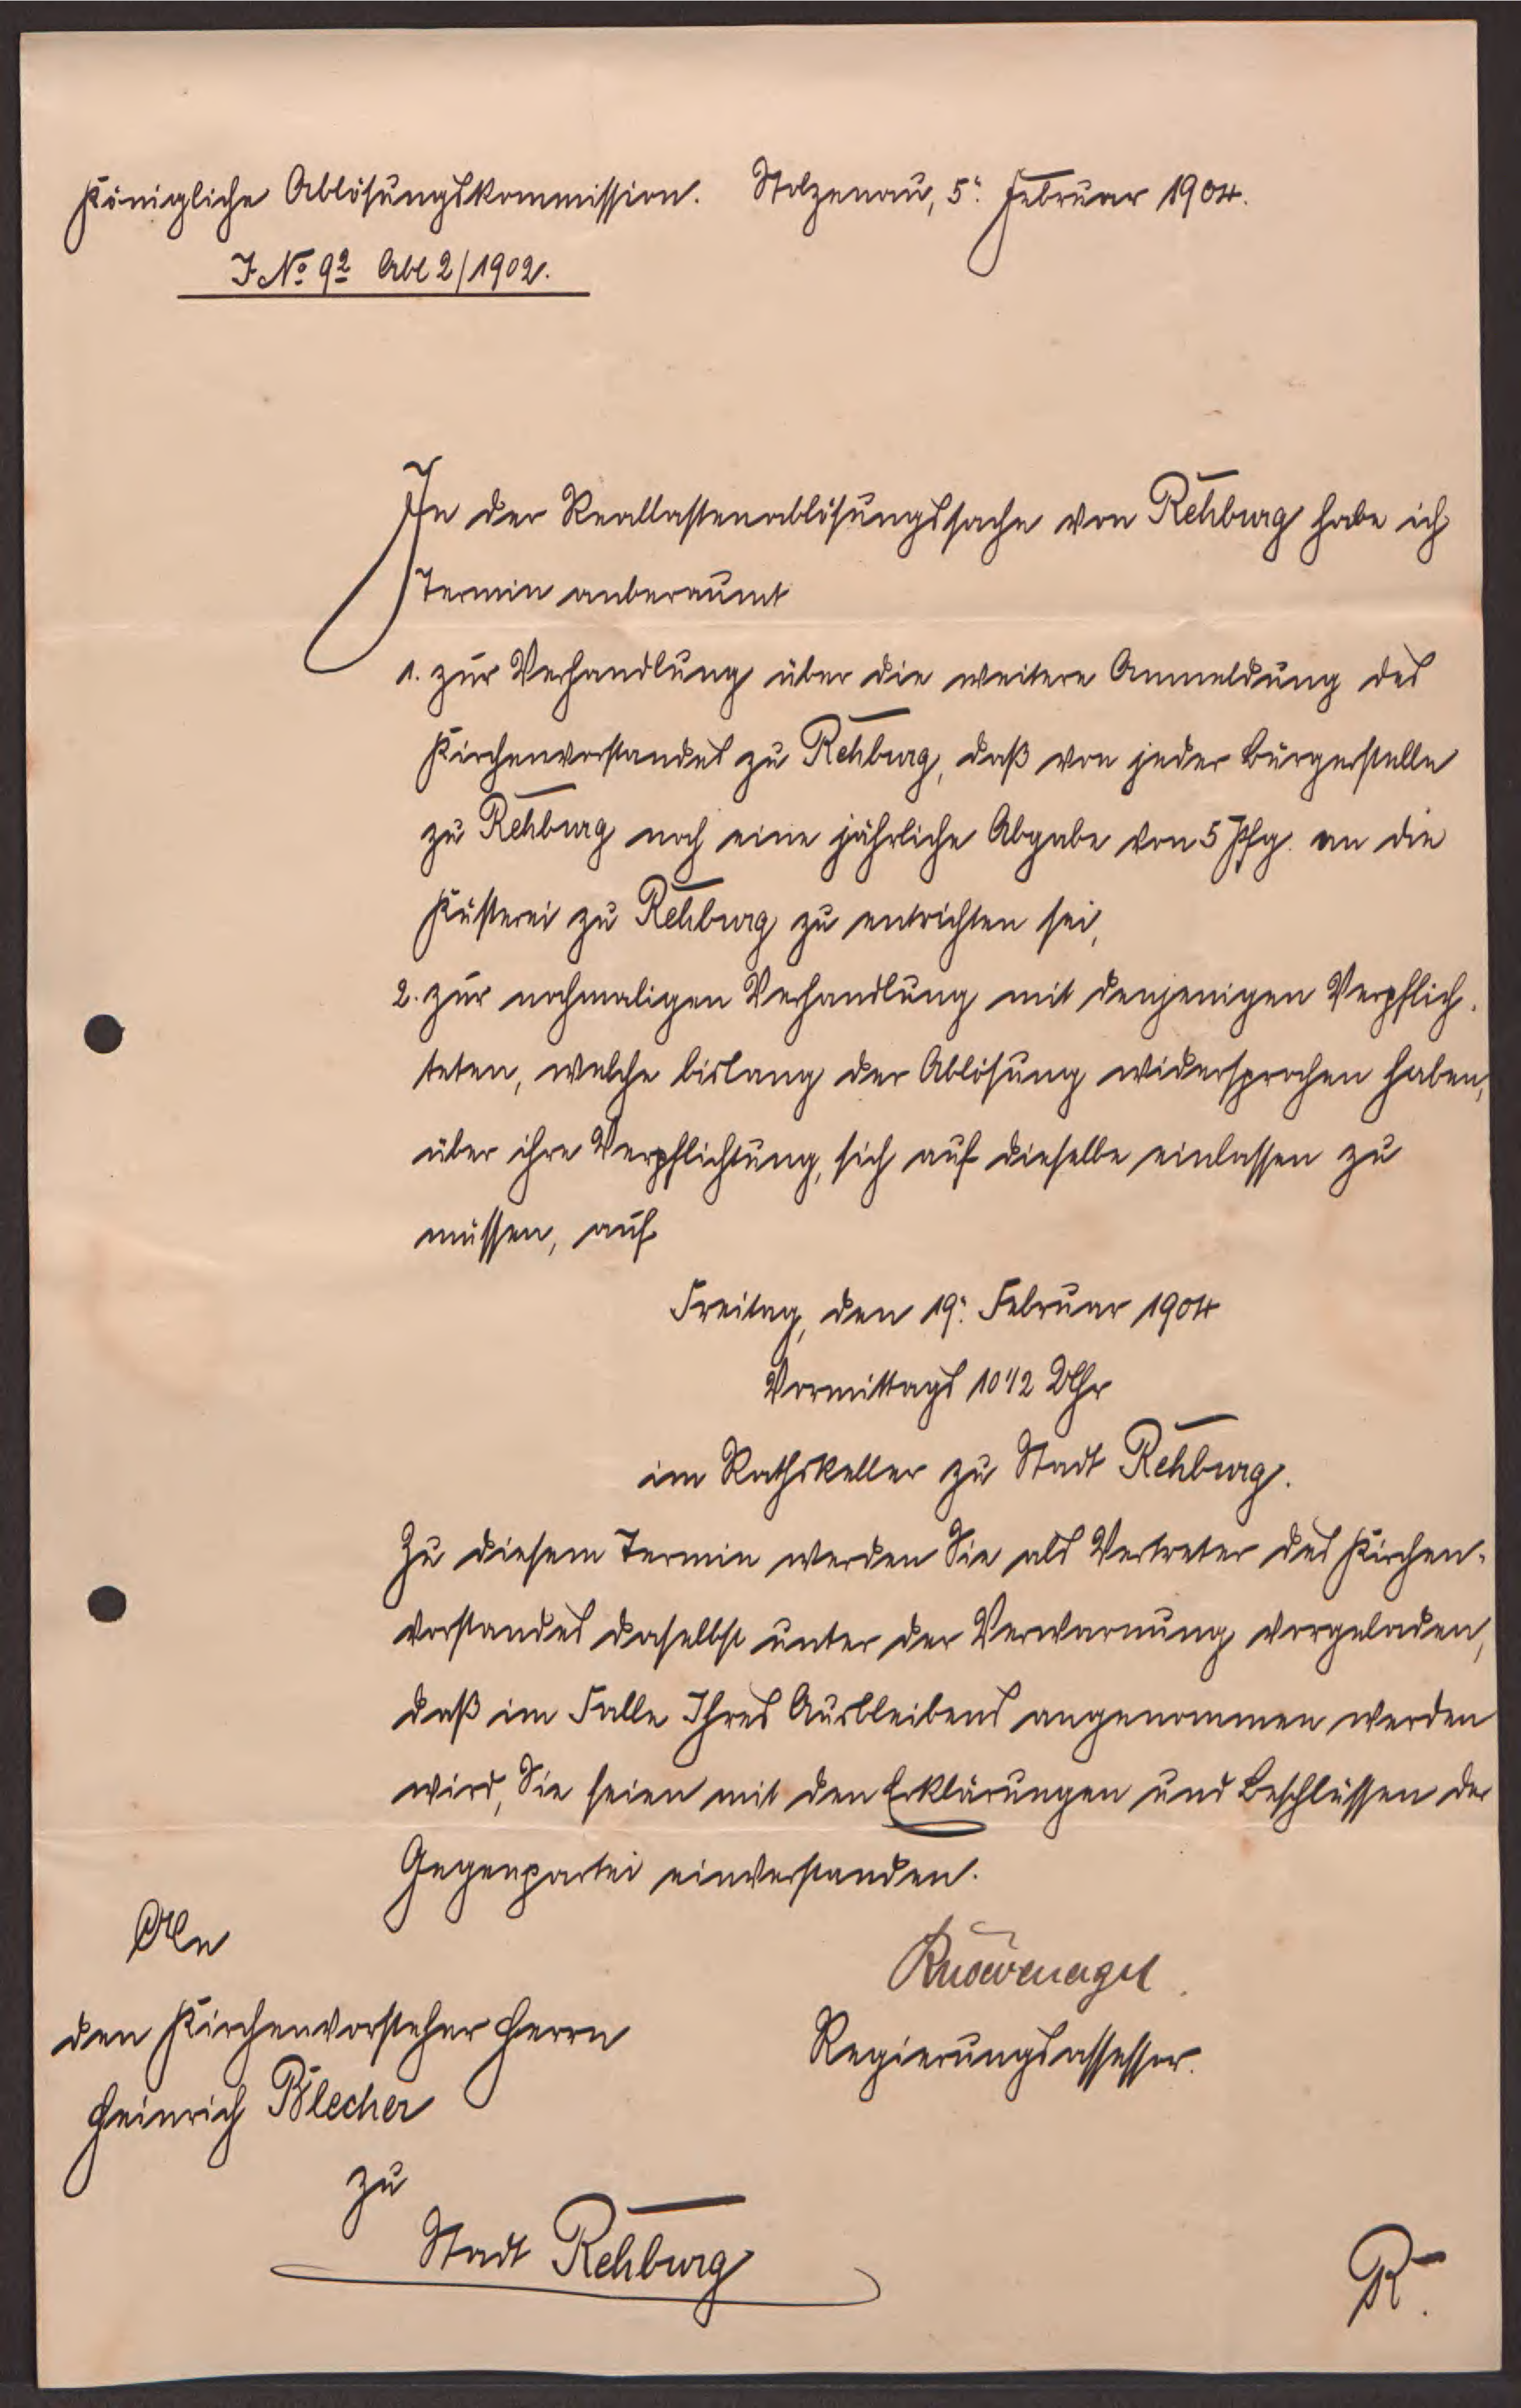 Königliche Ablösungskommission. Stolzenau, 5. Februar 1904.
J. No. 92 Abl 2/1902.
In der Reallastenablösungssache von Rehburg habe ich
Termin anberaumt
1. zur Verhandlung über die weitere Anmeldung des
Kirchenvorstandes zu Rehburg, daß von jeder Bürgerstelle
zu Rehburg noch eine jährliche Abgabe von 5 Pfg. an die
Küsterei zu Rehburg zu entrichten sei,
2. zur nochmaligen Verhandlung mit denjenigen Verpflich-
teten, welche bislang der Ablösung widersprochen haben,
über ihre Verpflichtung, sich auf dieselbe einlassen zu
müssen, auf
Freitag, den 19. Februar 1904
Vormittags 10 1/2 Uhr
im Rathskeller zu Stadt Rehburg.
Zu diesem Termin werden Sie als Vertreter des Kirchen-
vorstandes daselbst unter der Verwarnung vorgeladen,
daß im Falle Ihres Ausbleibens angenommen werden
wird, Sie seien mit den Erklärungen und Beschlüssen der
Gegenpartei einverstanden.
An
den Kirchenvorsteher Herrn
Regierungsassessor.
Heinrich Blecher
zu
Stadt Rehburg
R.